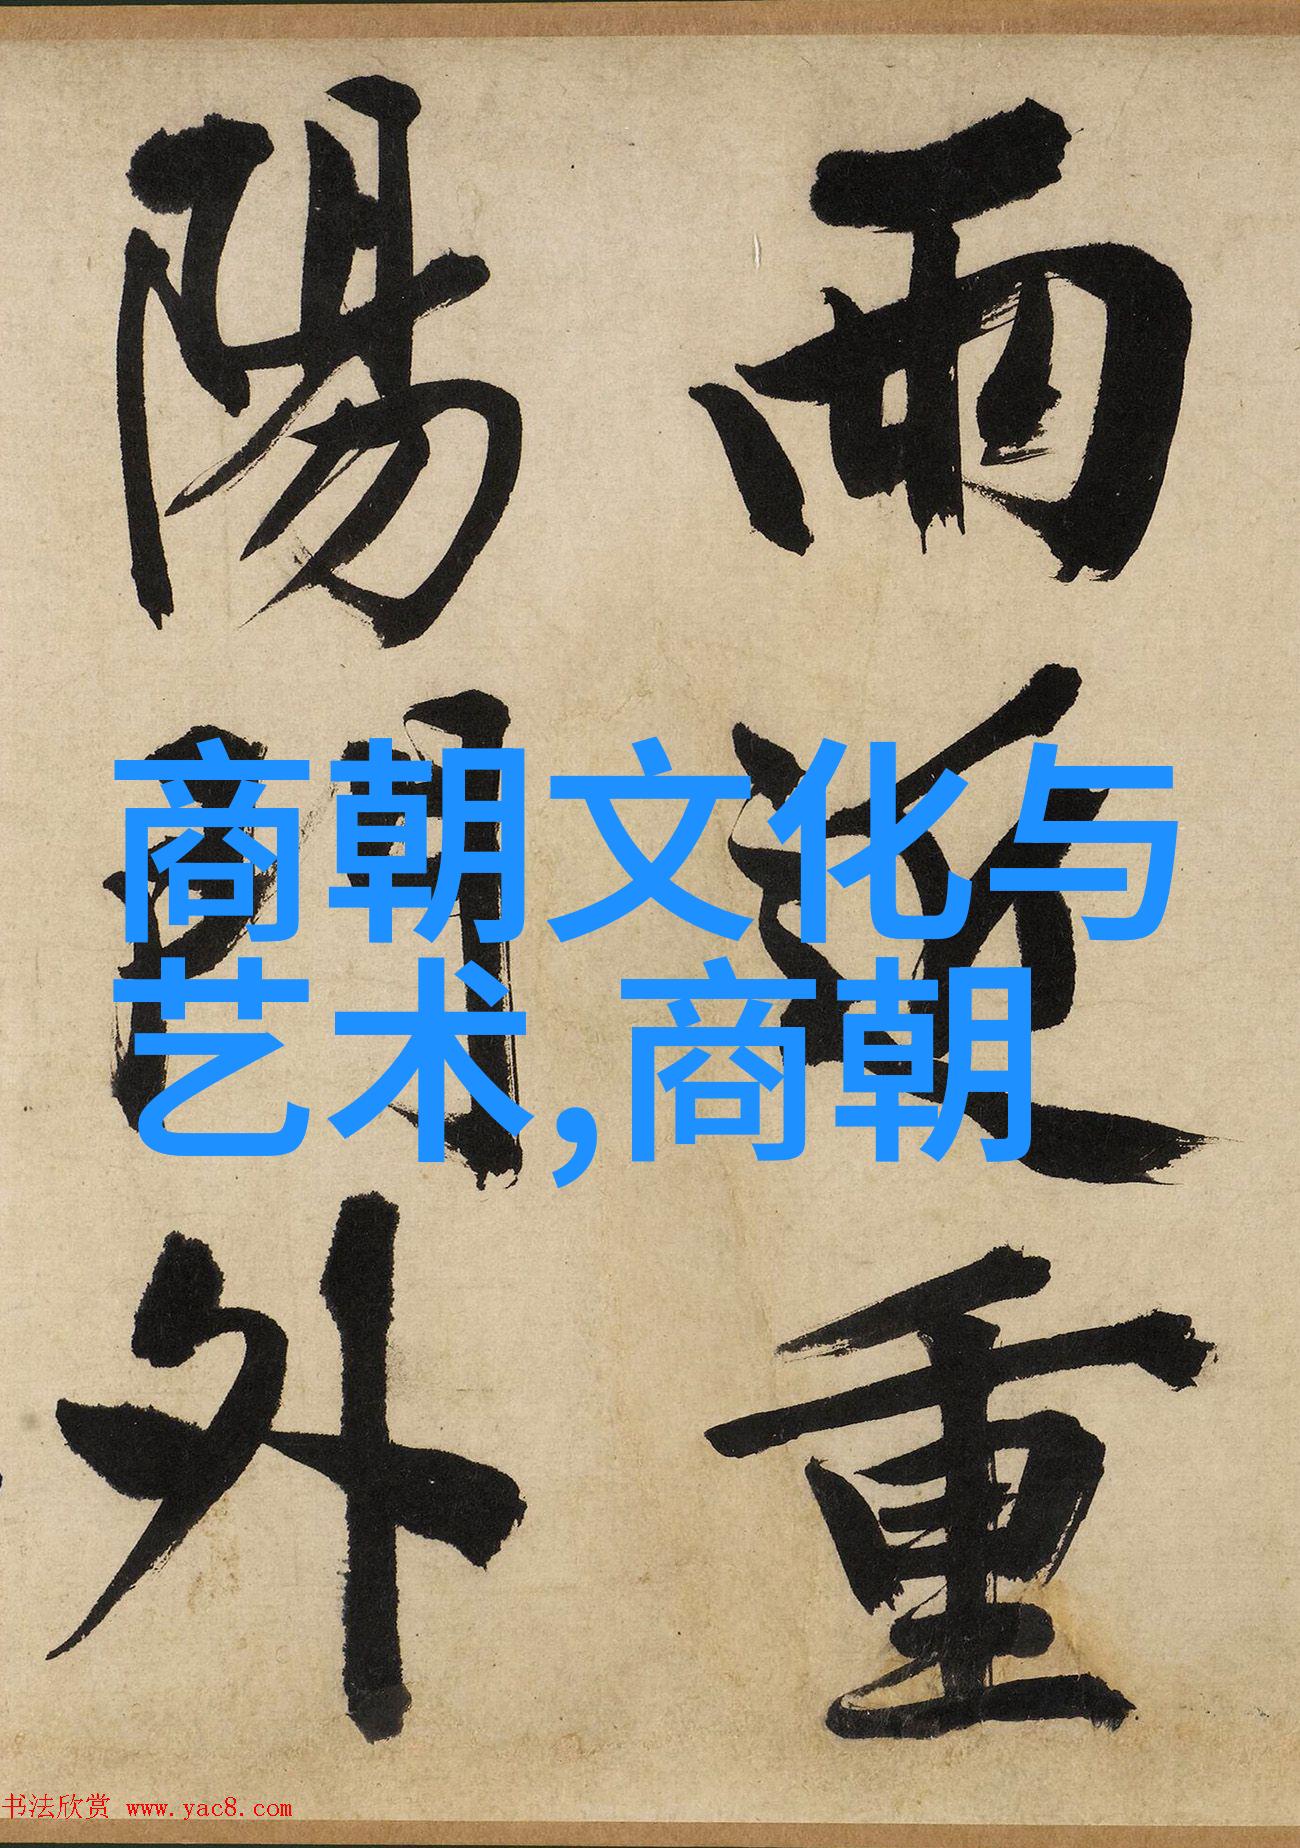 雨近重
陽門外
商朝文化与
艺术,商朝
书法欣赏 www.yac8.com